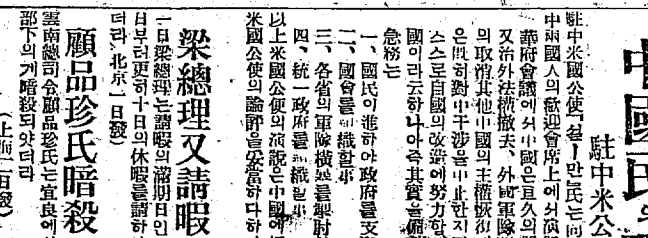 中國民
駐中米公
駐中米國公使「쉴ー만」氏는向
中兩國人의歡迎會席上에서演
華府會議에서中國은亘久의
又治外法權撤去、外國軍隊
의取消其他中國의主權恢復
은旣히對中干涉을中止한지
스스로自國의改造에努力할
國이라云하나아즉其實을備
急務는
一、國民이進하야政府를支
二、國會를組織할事
三、各省의軍隊橫暴를掣肘
四、統一政府를組織할事
以上米國公使의演說은中國에
米國公使의論評을妥當하다하
梁總理又請暇
一日梁總理는請暇의滿期日인
日부터更히十日의休暇를請하
더라(北京一日發)
顧品珍氏暗殺
雲南總司令顧品珍氏는宜良에
部下의게暗殺되얏더라
(上海二日發)